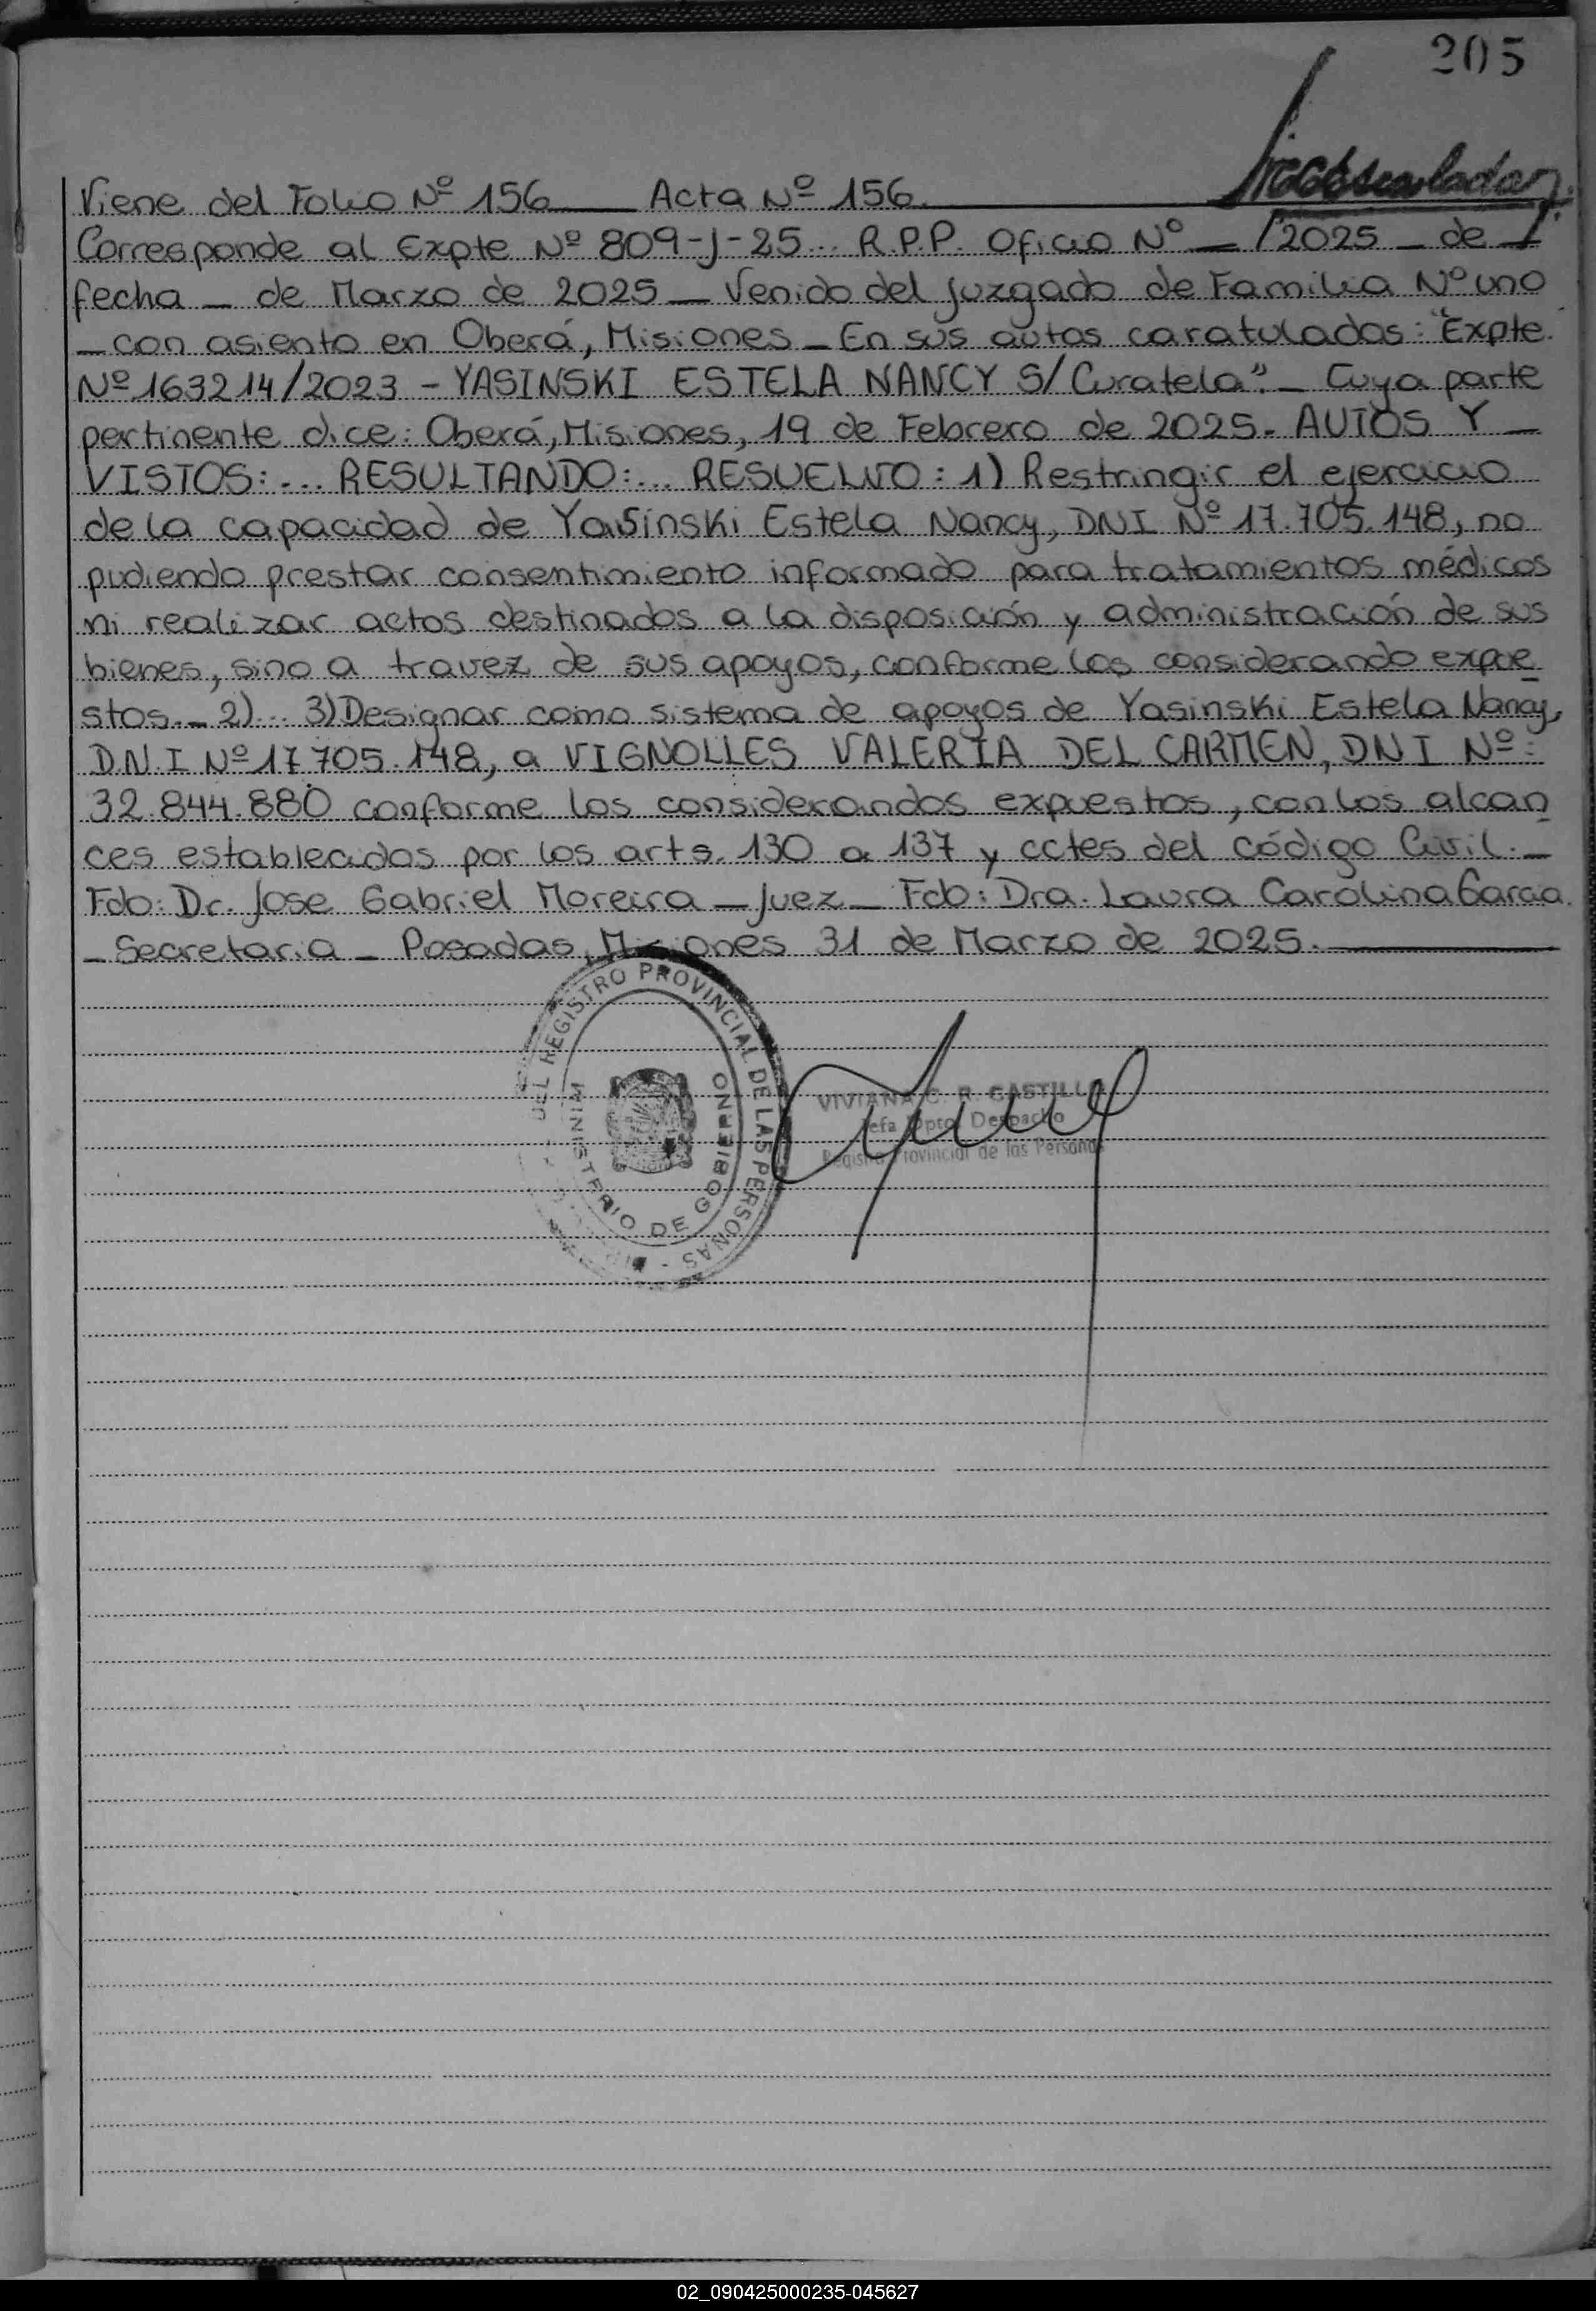 205
Viene del Folio Nº 156 ___ Acta Nº 156.
Corresponde al Expte Nº 809-J-25... R.P.P. Oficio Nº __ /2025 _ de _
fecha _ de Marzo de 2025 _ Venido del Juzgado de Familia Nº uno
_ con asiento en Oberá, Misiones _ En sus autos caratulados: "Expte.
Nº 163214/2023 - YASINSKI ESTELA NANCY S/ Curatela". _ Cuya parte
pertinente dice: Oberá, Misiones, 19 de Febrero de 2025. AUTOS Y _
VISTOS:... RESULTANDO:... RESUELVO: 1) Restringir el ejercicio
de la capacidad de Yasinski Estela Nancy, DNI Nº 17.705.148, no
pudiendo prestar consentimiento informado para tratamientos médicos
ni realizar actos destinados a la disposición y administración de sus
bienes, sino a travez de sus apoyos, conforme los considerando expue
stos. _ 2)... 3) Designar como sistema de apoyos de Yasinski Estela Nancy,
D.N.I Nº 17.705.148, a VIGNOLLES VALERIA DEL CARMEN, DNI Nº:
32.844.880 conforme los considerandos expuestos, con los alcan
ces establecidos por los arts. 130 a 137 y cctes del código Civil. _
Fdo: Dr. Jose Gabriel Moreira _ Juez _ Fdo: Dra. Laura Carolina Garcia.
_ Secretaria _ Posadas, Misiones 31 de Marzo de 2025.
DEL REGISTRO PROVINCIAL DE LAS PERSONAS -
MINISTERIO DE GOBIERNO
VIVIANA C. R. CASTILLO
Jefa Dpto. Despacho
Registro Provincial de las Personas
02_090425000235-045627